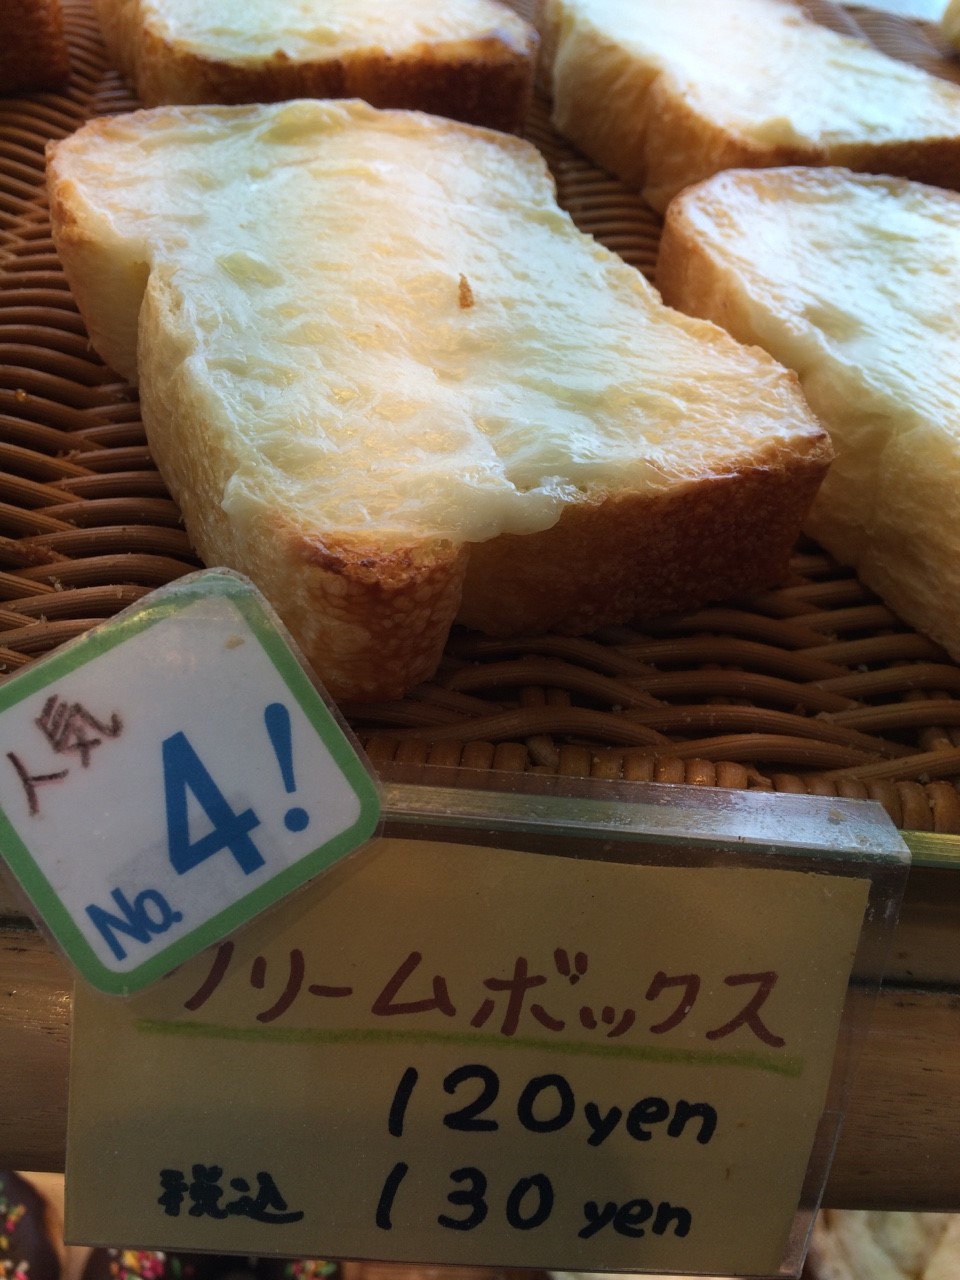 人気
No. 4!
クリームボックス
120yen
税込 130yen